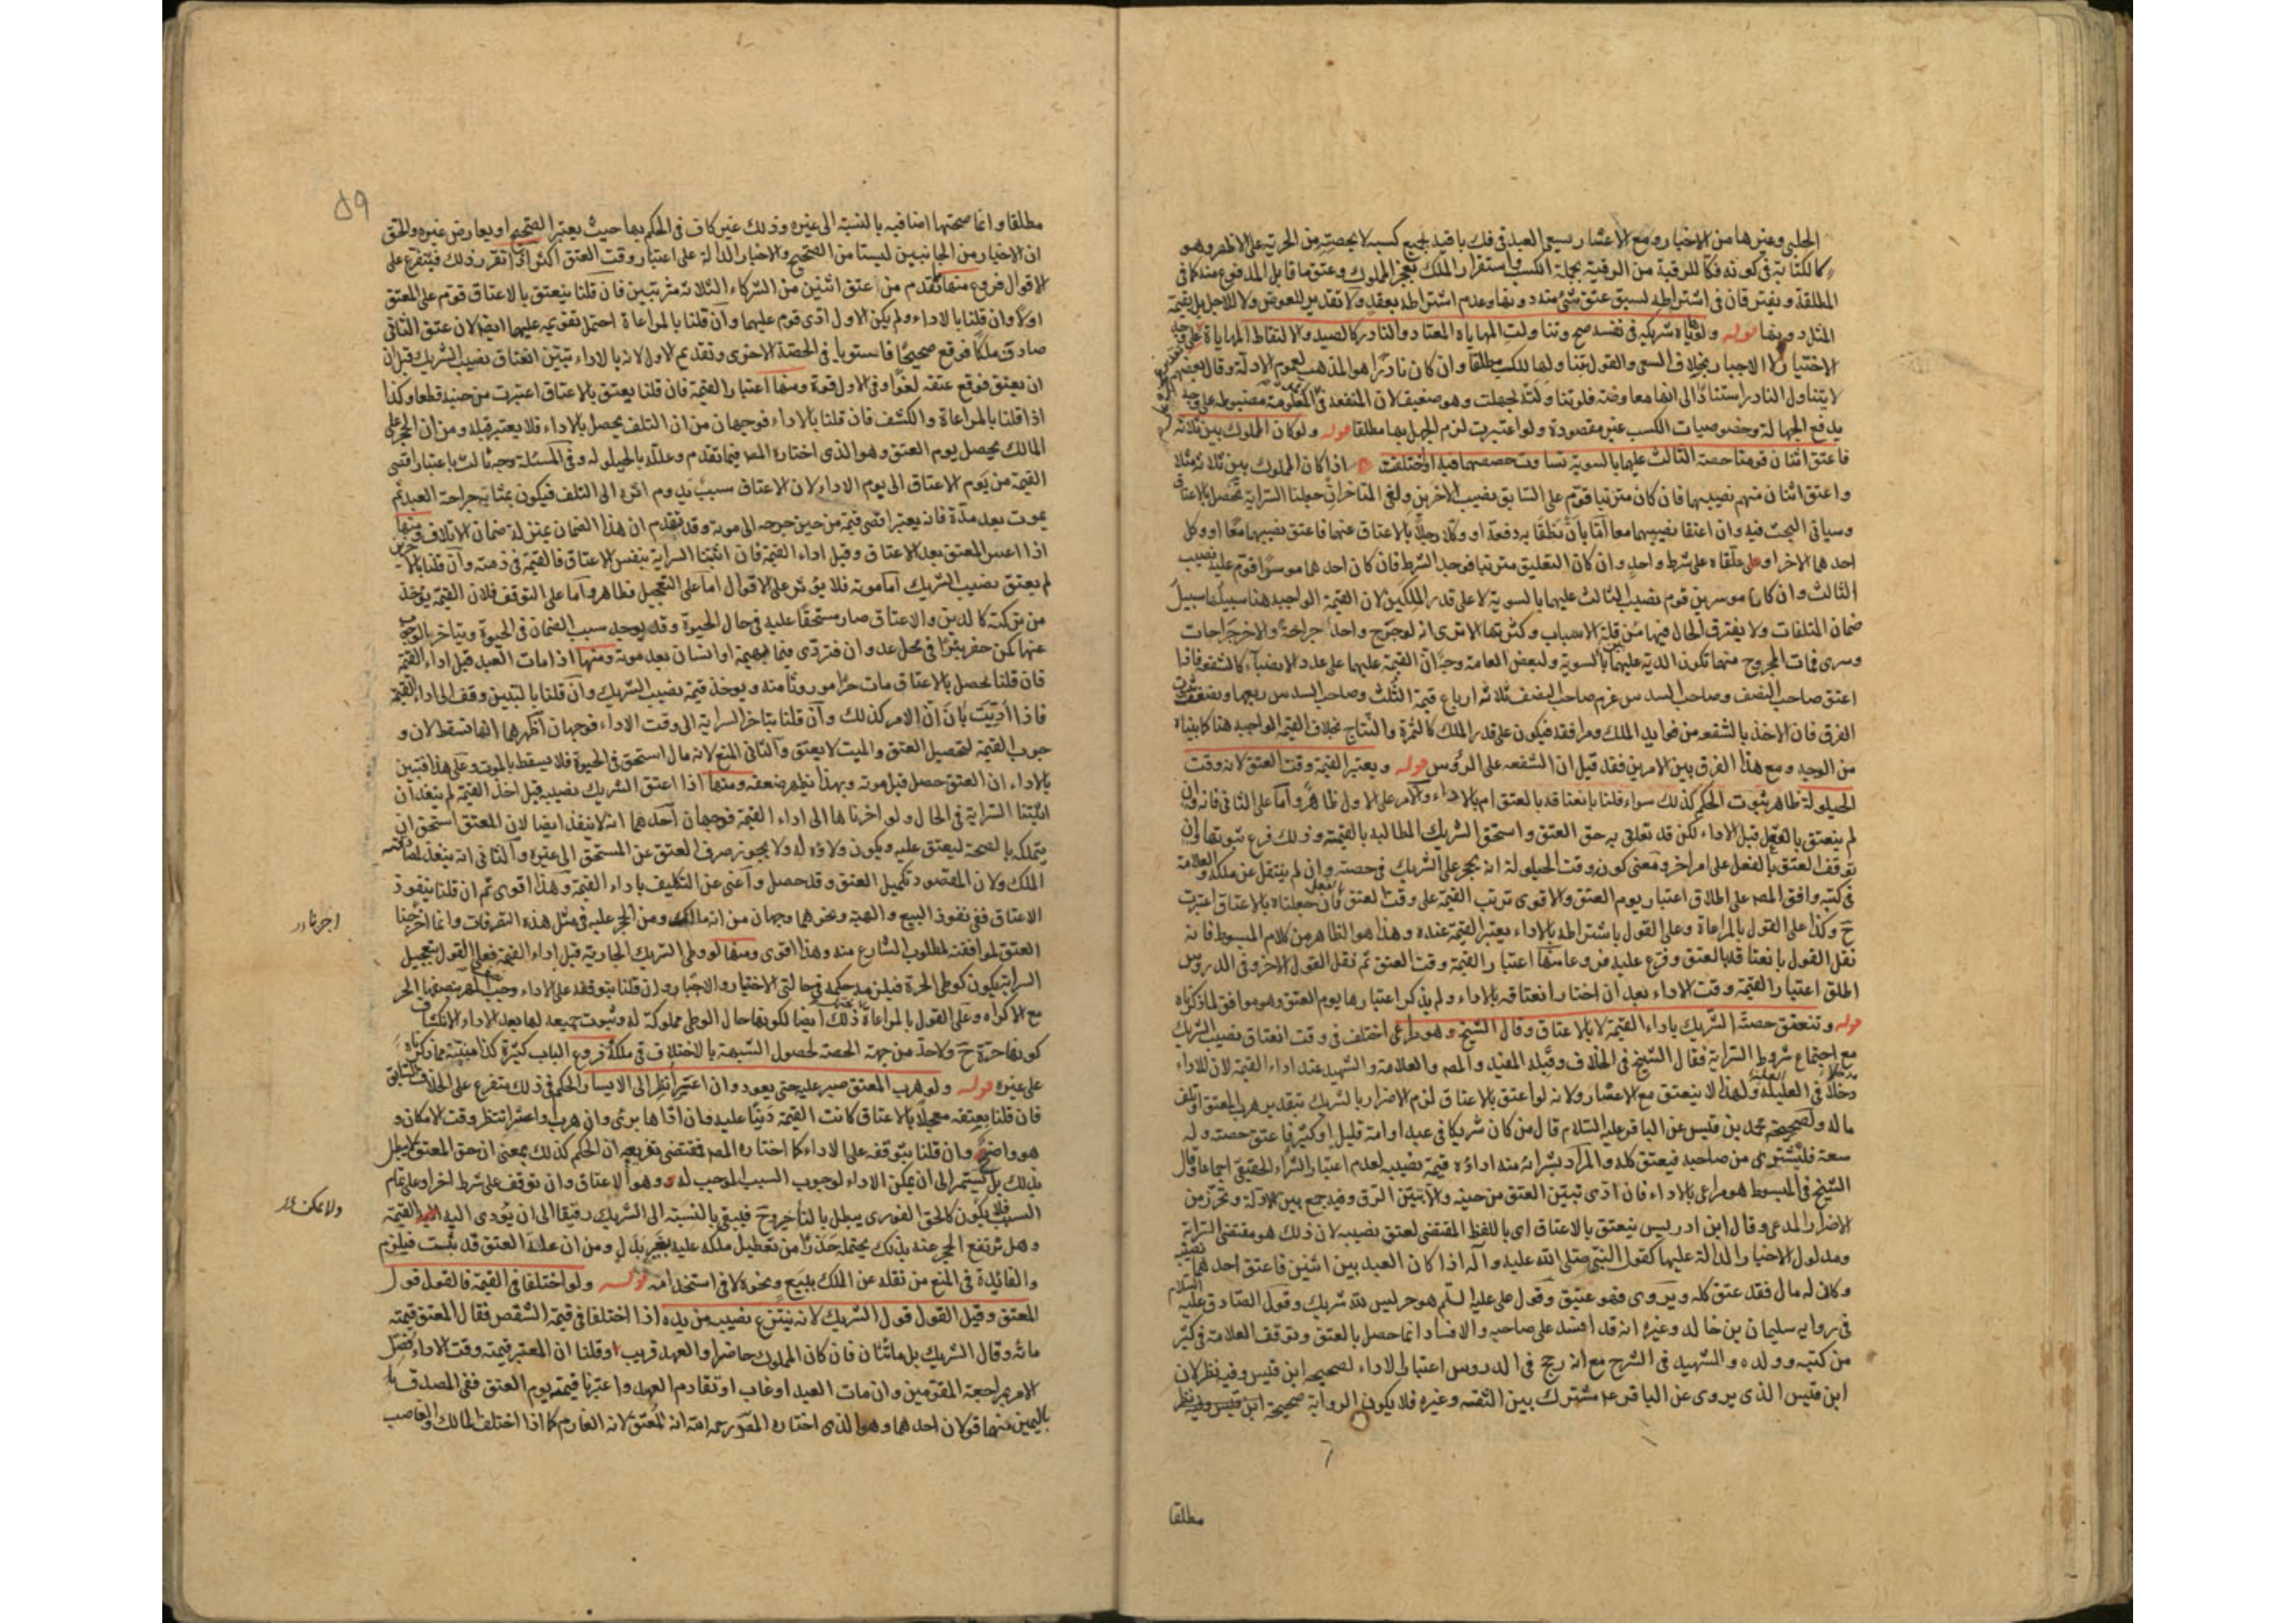 الحلبي وغيرها من الاخبار ومع الاعسار يسعى العبد في فك باقيه بجميع كسبه لا بحصته من الحرية على الاظهر وهو
كالكتابة في كونه فكا للرقبة من الرقية بجملة الكسب واستقرار الملك بعجز المملوك وعتق ما قابل المدفوع منه كما في
المطلقة ويفترقان في اشتراطه لسبق عتق شئ منه دونها وعدم اشتراطه بعقد ولا تقدير للعوض ولا للاجل بل بقيمة
المثل دونها قوله ولو هاياه شريكه في نفسه صح وتناولت المهاياة المعتاد والنادر كالصيد والالتقاط المهاياة
الاختيار لا الاجبار بخلاف السعي والقول بتناولها للكسب مطلقا وان كان نادرا هو المذهب لعموم الادلة وقال بعضهم
لا يتناول النادر استنادا الى انها معاوضة فلو تناولته لجهلت وهو ضعيف لان المنفعة في المعلومة مضبوطة على وجه
يدفع الجهالة وخصوصيات الكسب غير مقصودة ولو اعتبرت لزم الجهل بها مطلقا قوله ولو كان المملوك بين ثلاثة
فاعتق اثنان قومتا حصة الثالث عليهما بالسوية تساوت حصصهما فيه او اختلفت اذا كان المملوك بين ثلاثة مثلا
واعتق اثنان منهم نصيبهما فان كان مترتبا قوم على السابق نصيب الاخرين ولغى المتاخر ان جعلنا السراية تحصل بالاعتاق
وسياتي البحث فيه وان اعتقا نصيبهما معا اما بان تلفظا به دفعة او وكلا رجلا بالاعتاق عنهما فاعتق نصيبهما معا او وكل
احدهما الاخر او علقاه على شرط واحد وان كان التعليق مترتبا فوجد الشرط فان كان احدهما موسرا قوم عليه نصيب
الثالث وان كانا موسرين قوم نصيب الثالث عليهما بالسوية لا على قدر الملكين لان القيمة الواجبة هنا سبيلها سبيل
ضمان المتلفات ولا يفترق الحال فيها بين قلة الاسباب وكثرتها الا ترى انه لو جرح واحد جراحة والاخر جراحات
وسرى فمات المجروح منهما تكون الدية عليهما بالسوية ولبعض العامة وجه ان القيمة عليهما على عدد الانصباء كالشفعة فاذا
اعتق صاحب النصف وصاحب السدس غرم صاحب النصف ثلاثة ارباع قيمة الثلث وصاحب السدس ربعها وضعفت بثبوت
الفرق فان الاخذ بالشفعة من فوايد الملك ومرافقه فيكون على قدر الملك كالثمرة والنتاج بخلاف القيمة الواجبة هنا كما بيناه
من الوجه ومع هذا الفرق بين الامرين فقد قيل ان الشفعة على الرؤس قوله ويعتبر القيمة وقت العتق لانه وقت
الحيلولة ظاهر ثبوت الحكم كذلك سواء قلنا بانعتاقه بالعتق ام بالاداء والامر على الاول ظاهر واما على الثاني فانه وان
لم ينعتق بالفعل قبل الاداء لكن قد تعلق به حق العتق واستحق الشريك المطالبة بالقيمة وذلك فرع ثبوتها وان
توقف العتق بالفعل على امر اخر ومعنى كونه وقت الحيلولة انه يحجر على الشريك في حصته وان لم ينتقل عن ملكه والعلامة
في كتبه وافق المص على اطلاق اعتبار يوم العتق والاقوى ترتب القيمة على وقت العتق فان جعلناه بالاعتاق اعتبرت
ح وكذا على القول بالمراعاة وعلى القول باشتراطه بالاداء يعتبر القيمة عنده وهذا هو الظاهر من كلام المبسوط فانه
نقل القول بانعتاقه بالعتق وفرع عليه فروعا منها اعتبار القيمة وقت العتق ثم نقل القول الاخر وفي الدروس
اطلق اعتبار القيمة وقت الاداء بعد ان اختار انعتاقه بالاداء ولم يذكر اعتبارها يوم العتق وهو موافق لما ذكرناه
قوله وتنعتق حصة الشريك باداء القيمة لا بالاعتاق وقال الشيخ وهو مراعى اختلف في وقت انعتاق نصيب الشريك
مع اجتماع شروط السراية فقال الشيخ في الخلاف وقبله المفيد والمص والعلامة والشهيد عند اداء القيمة لان للاداء
دخلا في العلية ولهذا لا ينعتق مع الاعسار ولانه لو اعتق بالاعتاق لزم الاضرار بالشريك بتقدير هرب المعتق او تلف
ماله ولصحيحة محمد بن قيس عن الباقر عليه السلام قال من كان شريكا في عبد او امة قليل او كثير فاعتق حصته وله
سعة فليشترى من صاحبه فيعتق كله والمراد بشرائه منه اداؤه قيمة نصيبه لعدم اعتبار الشراء الحقيقي اجماعا وقال
الشيخ في المبسوط هو مراعى بالاداء فان ادى تبين العتق من حينه والا تبين الرق وفيه جمع بين الادلة وتحرز من
الاضرار المدعى وقال ابن ادريس ينعتق بالاعتاق اى باللفظ المقتضى لعتق نصيبه لان ذلك هو مقتضى السراية
ومدلول الاخبار الدالة عليها كقول النبي صلى الله عليه وآله اذا كان العبد بين اثنين فاعتق احدهما نصيبه
وكان له مال فقد عتق كله ويروى فهو عتيق وقول على عليه السلم هو حر ليس لله شريك وقول الصادق عليه السلام
في رواية سليمان بن خالد وغيره انه قد افسد على صاحبه والافساد انما حصل بالعتق وتوقف العلامة في كثير
من كتبه وولده والشهيد في الشرح مع انه رجح في الدروس اعتبار الاداء لصحيحة ابن قيس وفيه نظر لان
ابن قيس الذى يروى عن الباقر ع مشترك بين الثقة وغيره فلا يكون الرواية صحيحة
مطلقا
٥٩
مطلقا وانما صحتها اضافية بالنسبة الى غيره وذلك غير كاف في الحكم بها حيث يعتبر الصحيح او يعارض غيره والحق
ان الاخبار من الجانبين ليستا من الصحيح والاخبار الدالة على اعتبار وقت العتق اكثر اذا تقرر ذلك فيتفرع على
الاقوال فروع منها ما تقدم من عتق اثنين من الشركاء الثلاثة مترتبين فان قلنا ينعتق بالاعتاق قوم على المعتق
اولا وان قلنا بالاداء ولم يكن الاول ادى قوم عليهما وان قلنا بالمراعاة احتمل تقويمه عليهما ايضا لان عتق الثاني
صادق ملكا فوقع صحيحا فاستويا في الحصة الاخرى وتقديم الاول لانه بالاداء تبين انعتاق نصيب الشريك قبل ان
ان يعتق فوقع عتقه لغوا وفي الاول قوة ومنها اعتبار القيمة فان قلنا يعتق بالاعتاق اعتبرت من حينه قطعا وكذا
اذا قلنا بالمراعاة والكشف فان قلنا بالاداء فوجهان من ان التلف يحصل بالاداء فلا يعتبر قبله ومن ان الحجر على
المالك يحصل يوم العتق وهو الذى اختاره المص فيما تقدم وعلله بالحيلولة وفي المسئلة وجه ثالث باعتبار اقصى
القيمة من يوم الاعتاق الى يوم الاداء لان الاعتاق سبب يدوم اثره الى التلف فيكون بمثابة جراحة العبد ثم
يموت بعد مدة فانه يعتبر اقصى قيمة من حين جرحه الى موته وقد تقدم ان هذا الضمان بمنزلة ضمان الاتلاف ومنها
اذا اعسر المعتق بعد الاعتاق وقبل اداء القيمة فان اثبتنا السراية بنفس الاعتاق فالقيمة في ذمته وان قلنا بالاخرين
لم يعتق نصيب الشريك اما موته فلا يؤثر على الاقوال اما على التعجيل فظاهر واما على التوقف فلان القيمة يؤخذ
من تركته كالدين والاعتاق صار مستحقا عليه في حال الحيوة وقد يوجد سبب الضمان في الحيوة ويتاخر الوجوب
عنها كمن حفر بئرا في محل عدوان فتردى فيها بهيمة او انسان بعد موته ومنها اذا مات العبد قبل اداء القيمة
فان قلنا تحصل بالاعتاق مات حرا موروثا منه ويوخذ قيمة نصيب الشريك وان قلنا بالتبيين وقف الى اداء القيمة
فاذا اديت بان ان الامر كذلك وان قلنا بتاخر السراية الى وقت الاداء فوجهان اظهرهما انها تسقط لان و
جوب القيمة لتحصيل العتق والميت لا يعتق والثاني المنع لانه مال استحق في الحيوة فلا يسقط بالموت وعلى هذا فتبين
بالاداء ان العتق حصل قبل موته وبهذا يظهر ضعفه ومنها اذا اعتق الشريك نصيبه قبل اخذ القيمة لم ينفذ ان
اثبتنا السراية في الحال ولو اخرناها الى اداء القيمة فوجهان احدهما انه لا ينفذ ايضا لان المعتق استحق ان
يتملكه بالصحة ليعتق عليه ويكون ولاؤه له ولا يجوز صرف العتق عن المستحق الى غيره والثاني انه ينفذ لمصادفته
الملك ولان المقصود تكميل العتق وقد حصل واغنى عن التكليف باداء القيمة وهذا اقوى ثم ان قلنا بنفوذ
الاعتاق ففي نفوذ البيع والهبة ونحوهما وجهان من انه مالك ومن الحجر عليه في مثل هذه التصرفات وانما اخرجنا
العتق لموافقته لمطلوب الشارع منه وهذا اقوى ومنها لو وطئ الشريك الجارية قبل اداء القيمة فعلى القول بتعجيل
السراية يكون كوطى الحرة فيلزمه حكمه في حالتي الاختيار والاجبار وان قلنا بتوقفه على الاداء وجب المهر بنصفها الحر
مع الاكراه وعلى القول بالمراعاة ذلك ايضا لكونها حال الوطى مملوكة له وثبوت جميعه لها بعد الاداء لانكشاف
كونها حرة ح ولا حد من جهة الحصة لحصول الشبهة بالاختلاف في ملكه وفروع الباب كثيرة كذا مبنية مما ذكرناه
على غيره قوله ولو هرب المعتق صبر عليه حتى يعود وان اعتبر انظر الى الايسار والحكم في ذلك يتفرع على الخلاف السابق
فان قلنا بعتقه معجلا بالاعتاق كانت القيمة دينا عليه فان اداها برئ وان هرب واعسر انتظر وقت الامكان و
هو واضح وان قلنا بتوقفه على الاداء كما اختاره المص فمقتضى تفريعه ان الحكم كذلك بمعنى ان حق المعتق لا يبطل
بذلك بل يستمر الى ان يمكن الاداء لوجوب السبب الموجب له وهو الاعتاق وان توقف على شرط اخر او على تمام
السبب فلا يكون كالحق الفورى يبطل بالتأخير وح فيبقى بالنسبة الى الشريك رقيقا الى ان يؤدى اليه القيمة
وهل ترتفع الحجر عنه بذلك يحتمله حذرا من تعطيل ملكه عليه بغير بدل ومن ان علقة العتق قد ثبتت فيلزم
والفائدة في المنع من نقله عن الملك ببيع ونحوه لا في استخدامه قوله ولو اختلفا في القيمة فالقول قول
المعتق وقيل القول قول الشريك لانه ينتزع نصيبه من يده اذا اختلفا في قيمة الشقص فقال المعتق قيمته
مائة وقال الشريك بل مائتان فان كان المملوك حاضرا والعهد قريب او قلنا ان المعتبر قيمته وقت الاداء فصل
الامر بمراجعة المقومين وان مات العبد او غاب او تقادم العهد واعتبرنا قيمته يوم العتق ففي المصدق
باليمين منهما قولان احدهما وهو الذى اختاره المص رحمه الله انه المعتق لانه الغارم كما اذا اختلف المالك والغاصب